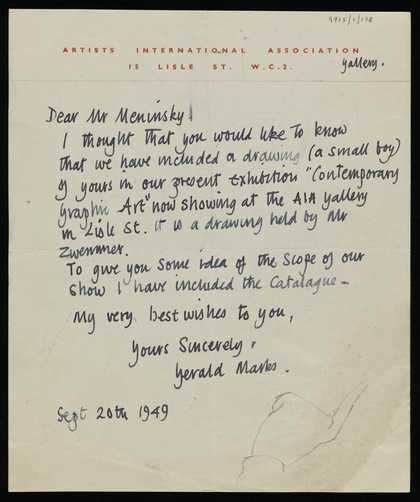 9915/1/178
ARTISTS INTERNATIONAL ASSOCIATION
15 LISLE ST. W.C.2.
Gallery.
Dear Mr Meninsky
I thought that you would like to know
that we have included a drawing (a small boy)
of yours in our present Exhibition "Contemporary
Graphic Art" now showing at the AIA Gallery
in Lisle St. it is a drawing held by Mr
Zwemmer.
To give you some idea of the scope of our
show I have included the Catalogue –
My very best wishes to you,
Yours Sincerely,
Gerald Marks.
Sept 20th 1949